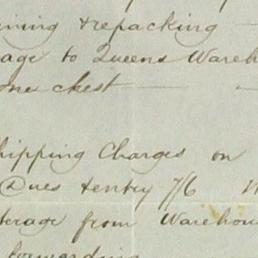 ining & repacking
age to Queens Wareho
one chest
hipping Charges on
Dues & entry 7/6
terage from Warehou
forwarding